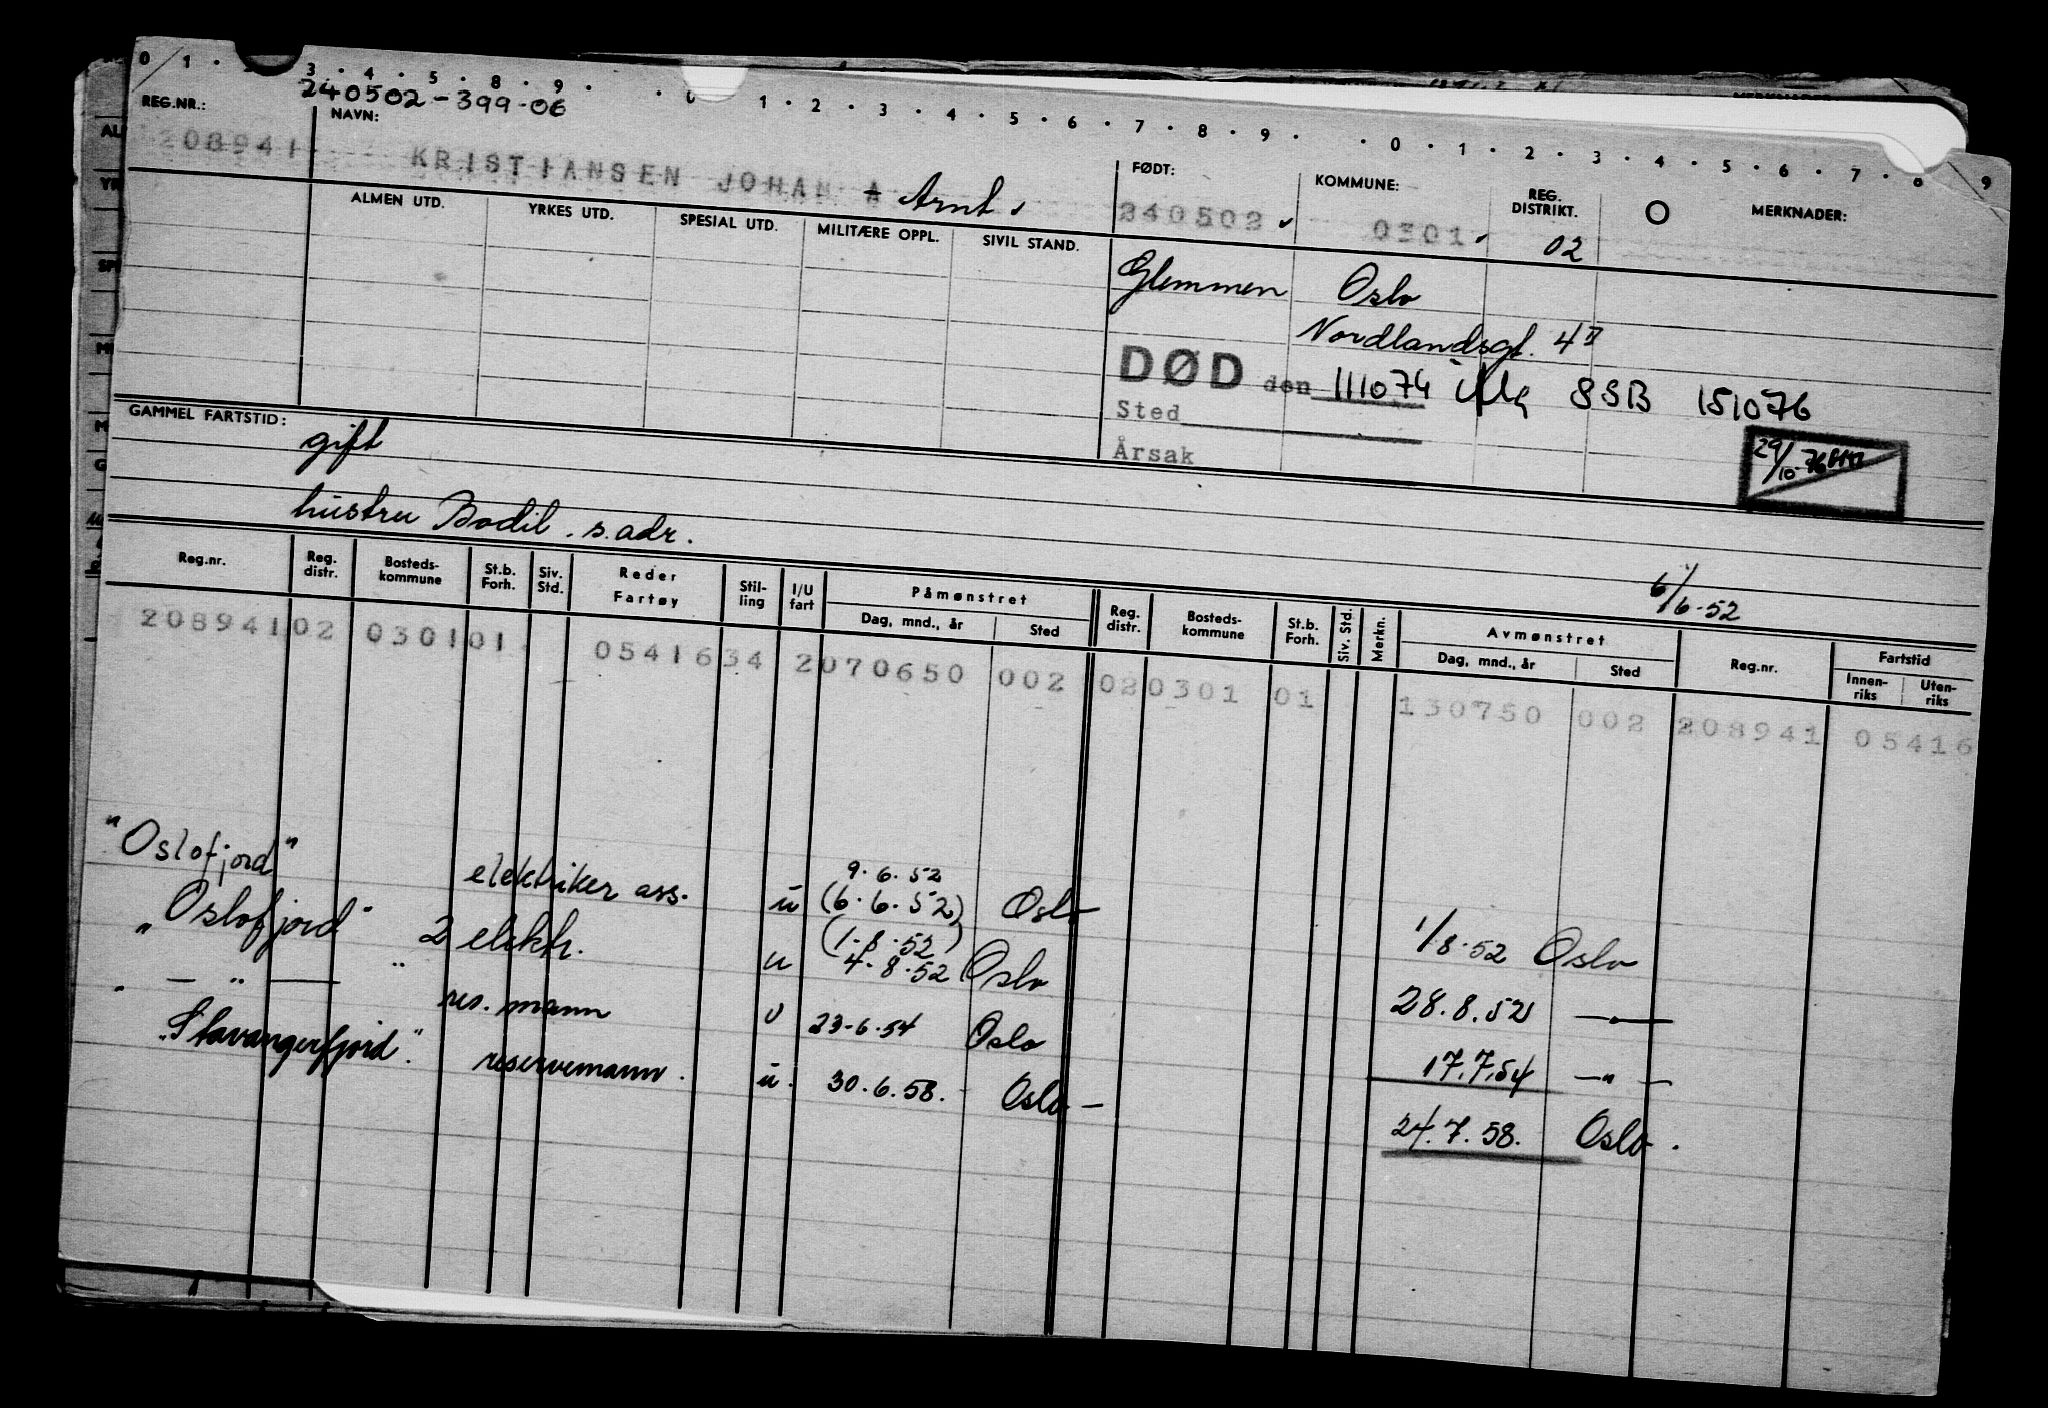 0 1 · 3 · 4 · 5 · 8 · 9 · · 0 1 · 2 · 3 · 4 · 5 · 6 · 7 · 8 · 9 · · 0 · 1 · 2 · 3 · 4 · 5 · 6 · 7 · 8 · 9
240502-399-06
REG.NR.: NAVN: FØDT: KOMMUNE: REG. DISTRIKT. O MERKNADER:
208941 KRISTIANSEN JOHAN A Arnt 240502 0301 02
ALMEN UTD. YRKES UTD. SPESIAL UTD. MILITÆRE OPPL. SIVIL STAND.
Glemmen Oslo
Nordlandsgt. 4 II
DØD den 111074 SSB 151076
Sted
Årsak
29/10-76
GAMMEL FARTSTID:
gift
hustru Bodil. s. adr.
6/6-52
Reg.nr. Reg. distr. Bosteds-kommune St.b. Forh. Siv. Std. Reder Fartøy Stil-ling I/U fart Påmønstret Dag, mnd., år Sted Reg. distr. Bosteds-kommune St.b. Forh. Siv. Std. Merkn. Avmønstret Dag, mnd., år Sted Reg.nr. Fartstid Innen-riks Uten-riks
208941 02 0301 01 05416 34 2 070650 002 02 0301 01 130750 002 208941 05416
"Oslofjord" elektriker ass. u 9.6.52 (6.6.52) Oslo 1/8-52 Oslo
"Oslofjord" 2 elektr. u (1.8.52) 4-8-52 Oslo 28.8.52 —"—
" — " — " res. mann u 23-6-54 Oslo 17.7.54 —"—
"Stavangerfjord". reservemann. u. 30.6.58. Oslo — 24.7.58. Oslo.